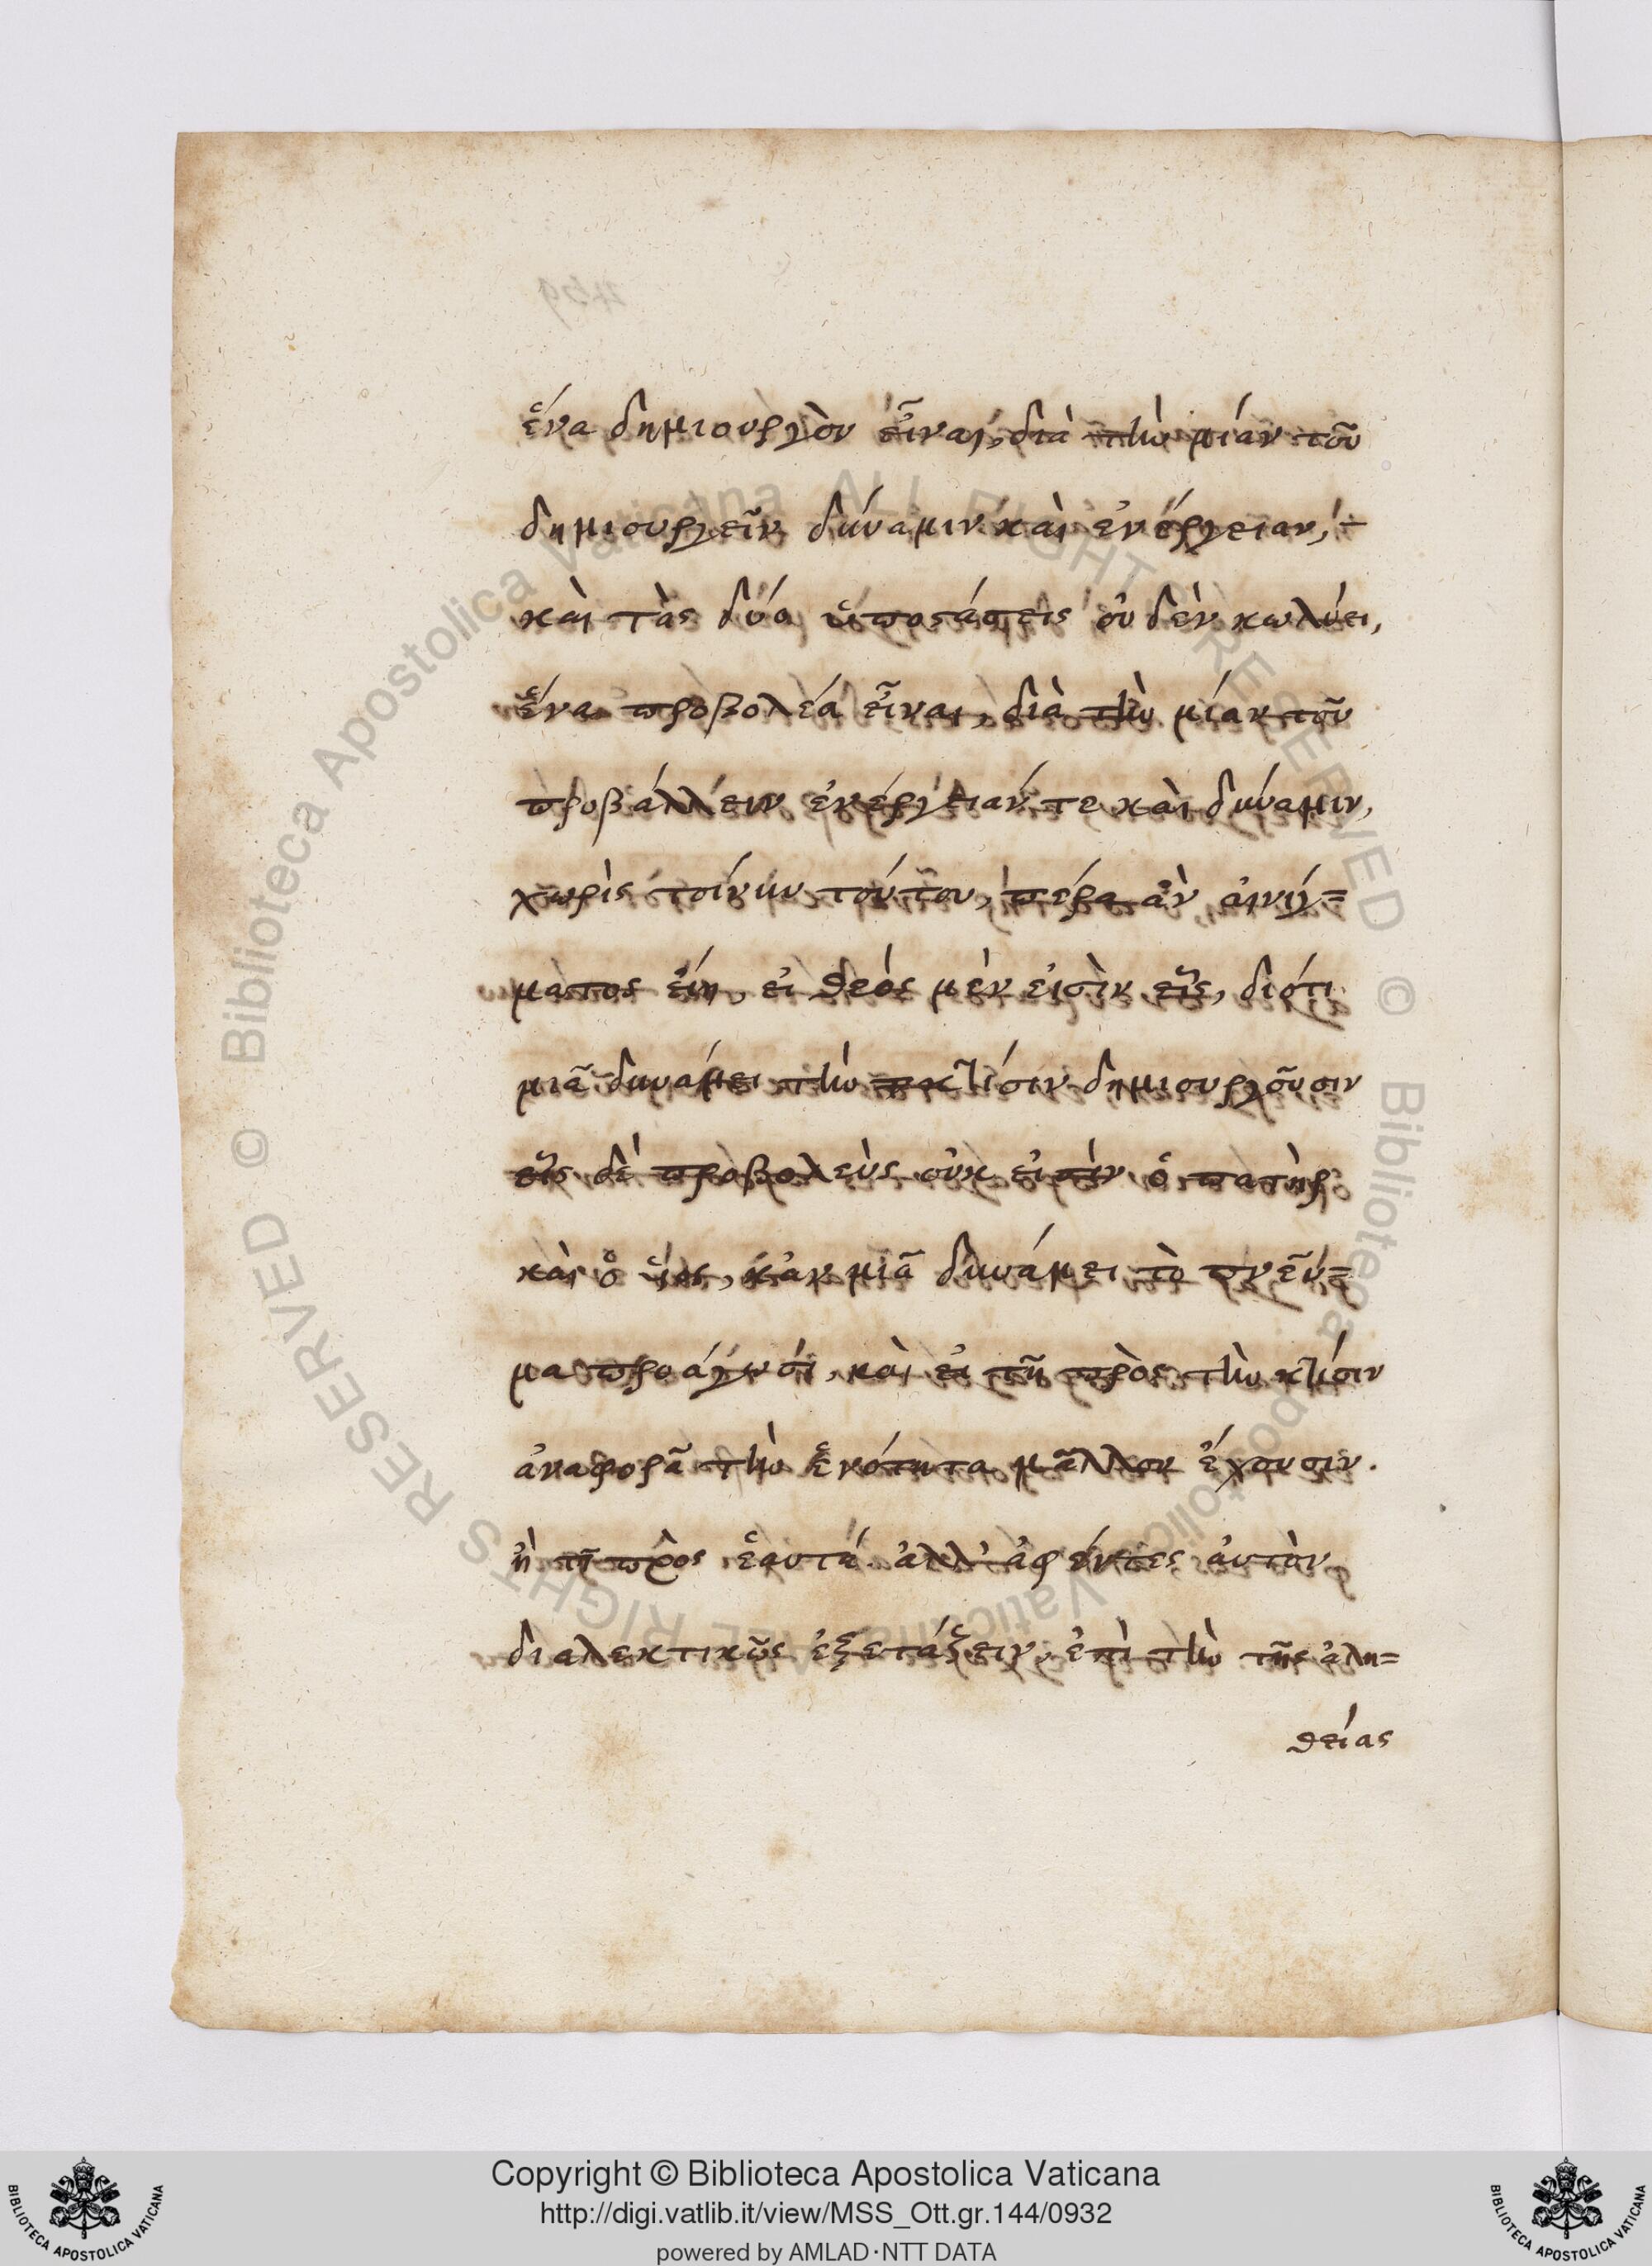 ἕνα δημιουργὸν εἶναι, διὰ τὴν μίαν τοῦ
δημιουργεῖν δύναμιν καὶ ἐνέργειαν,
καὶ τὰς δύο ὑποστάσεις οὐδὲν κωλύει,
ἕνα προβολέα εἶναι, διὰ τὴν μίαν τοῦ
προβάλλειν ἐνέργειάν τε καὶ δύναμιν,
χωρὶς τοίνυν τούτου, πέρα ἂν αἰνίγ=
ματος εἴη, εἰ θεὸς μὲν εἰσὶν εἷς, διότι
μιᾶ δυνάμει τὴν κτίσιν δημιουργοῦσιν
εἷς δὲ προβολεὺς οὐκ εἰσὶν ὁ πατὴρ
καὶ ὁ υἱός, κἂν μιᾶ δυνάμει τὸ πνεῦ=
μα προάγωσι, καὶ εἰ τῇ πρὸς τὴν κτίσιν
ἀναφορᾶ τὴν ἑνότητα μᾶλλον ἔχουσιν.
ἢ τῇ πρὸς ἑαυτά. ἀλλ' ἀφέντες αὐτὸν
διαλεκτικῶς ἐξετάζειν, ἐπὶ τὴν τῆς ἀλη=
θείας
Biblioteca Apostolica Vaticana ALL RIGHTS RESERVED © Biblioteca Apostolica Vaticana ALL RIGHTS RESERVED ©
Copyright © Biblioteca Apostolica Vaticana
http://digi.vatlib.it/view/MSS_Ott.gr.144/0932
powered by AMLAD·NTT DATA
BIBLIOTECA APOSTOLICA VATICANA
BIBLIOTECA APOSTOLICA VATICANA